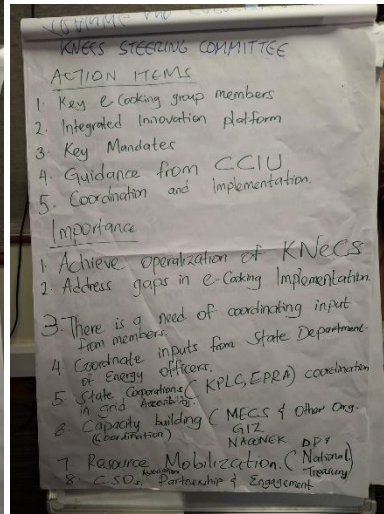 KNECS STEERING COMMITTEE
ACTION ITEMS
1. Key e-Cooking group members
2. Integrated Innovation platform
3. Key Mandates
4. Guidance from CCIU
5. Coordination and Implementation.
Importance
1. Achieve operalization of KNeCS
2. Address gaps in e-Cooking Implementation
3. There is a need of coordinating input
from members.
4. Coordinate inputs from State Department
of Energy officers.
5. State Corporations (KPLC, EPRA) coordination
in grid Accessibility.
6. Capacity building (MECS & Other Org.
(Coordination) GIZ
NACONEK DPs
7. Resource Mobilization. (National
Treasury)
8. CSOs, Partnership & Engagement